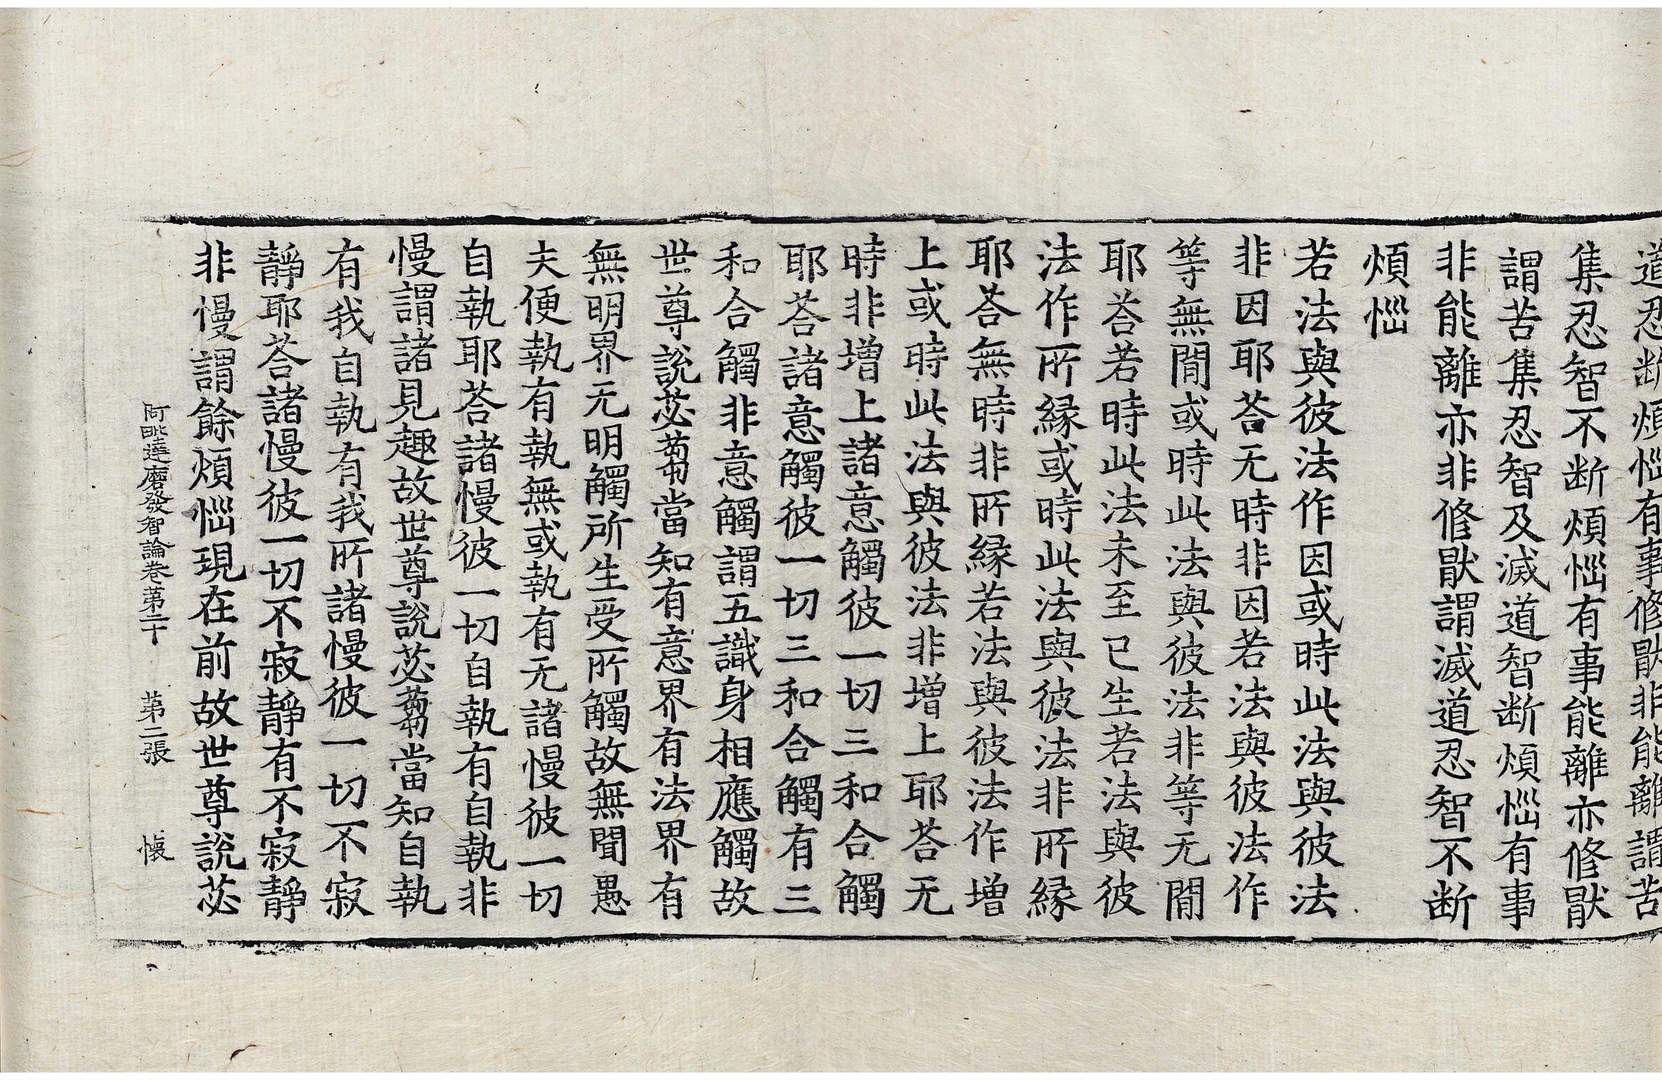 道忍断煩惱有事修猒非能離謂苦
集忍智不断煩惱有事能離亦修猒
謂苦集忍智及滅道智断煩惱有事
非能離亦非修猒謂滅道忍智不断
煩惱
若法與彼法作因或時此法與彼法
非因耶荅无時非因若法與彼法作
等無間或時此法與彼法非等无間
耶荅若時此法未至已生若法與彼
法作所縁或時此法與彼法非所縁
耶荅無時非所縁若法與彼法作增
上或時此法與彼法非增上耶荅无
時非增上諸意觸彼一切三和合觸
耶荅諸意觸彼一切三和合觸有三
和合觸非意觸謂五識身相應觸故
世尊說苾蒭當知有意界有法界有
無明界无明觸所生受所觸故無聞愚
夫便執有執無或執有无諸慢彼一切
自執耶荅諸慢彼一切自執有自執非
慢謂諸見趣故世尊說苾蒭當知自執
有我自執有我所諸慢彼一切不寂
靜耶荅諸慢彼一切不寂靜有不寂靜
非慢謂餘煩惱現在前故世尊說苾
阿毗達磨發智論卷第二十 第二張 懐